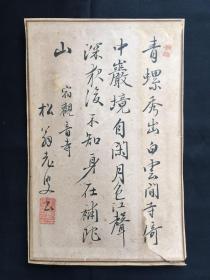 青螺秀出白雲間寺倚
中巖境自閑月色江聲
深夜後不知身在補陀
山
宿觀音寺
松翁老叟書